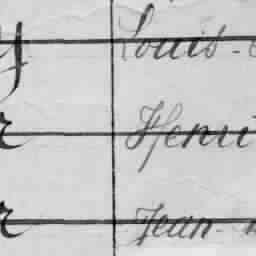 Louis-
Henri
Jean-